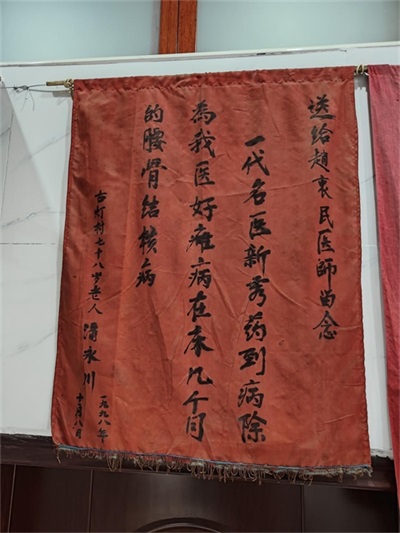 送给趙衷民医師畄念
一代名医新秀药到病除
為我医好瘫病在床几千间
的腰骨结核病
古灯村七十八岁老人 永川
一九九八年
十月八日